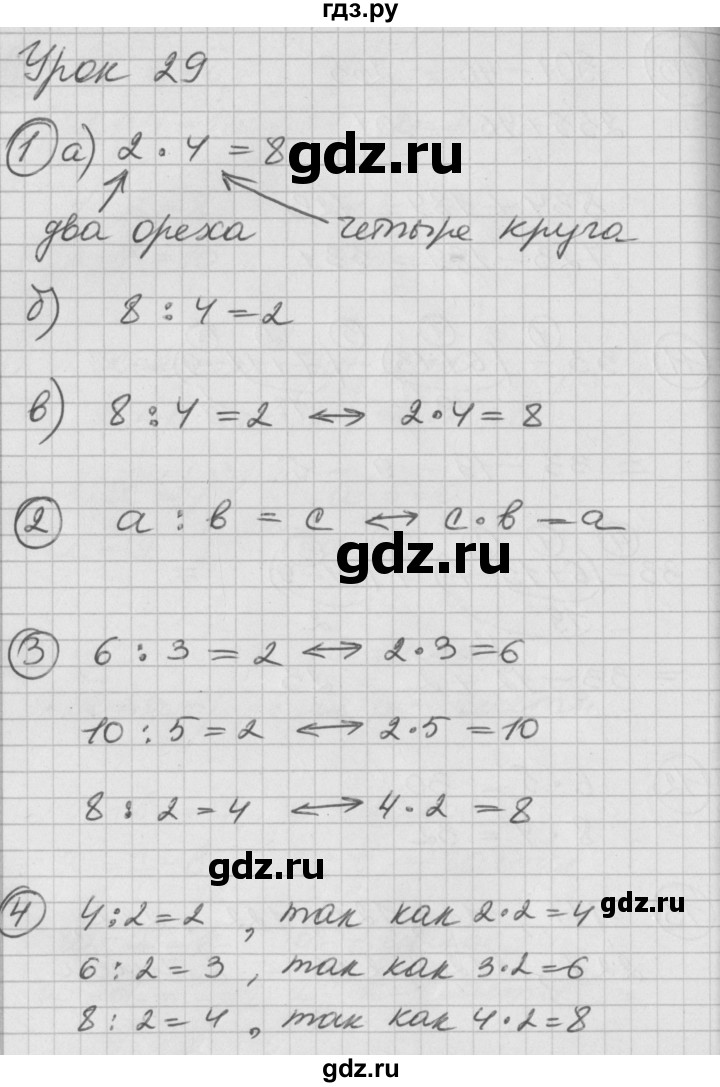 гдз.ру
Урок 29
1 а) 2 · 4 = 8
gdz.ru
два ореха четыре круга
б) 8 : 4 = 2
в) 8 : 4 = 2 ↔ 2 · 4 = 8
2 а : в = с ↔ с · в = а
gdz.ru
3 6 : 3 = 2 ↔ 2 · 3 = 6
10 : 5 = 2 ↔ 2 · 5 = 10
gdz.ru
8 : 2 = 4 ↔ 4 · 2 = 8
gdz.ru
4 4 : 2 = 2, так как 2 · 2 = 4
gdz.ru
6 : 2 = 3, так как 3 · 2 = 6
8 : 2 = 4, так как 4 · 2 = 8
gdz.ru